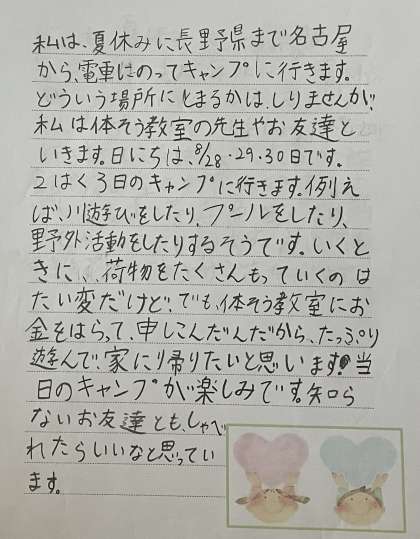 私は、夏休みに長野県まで名古屋
から、電車にのってキャンプに行きます。
どういう場所にとまるかは、しりませんが、
私は体そう教室の先生やお友達と
いきます。日にちは、8/28・29・30日です。
2はく3日のキャンプに行きます。例え
ば、川遊びをしたり、プールをしたり、
野外活動をしたりするそうです。いくと
きには、荷物をたくさんもっていくのは
たい変だけど、でも、体そう教室にお
金をはらって、申しこんだんだから、たっぷり
遊んで、家に帰りたいと思います。当
日のキャンプが楽しみです。知ら
ないお友達とも、しゃべ
れたらいいなと思ってい
ます。